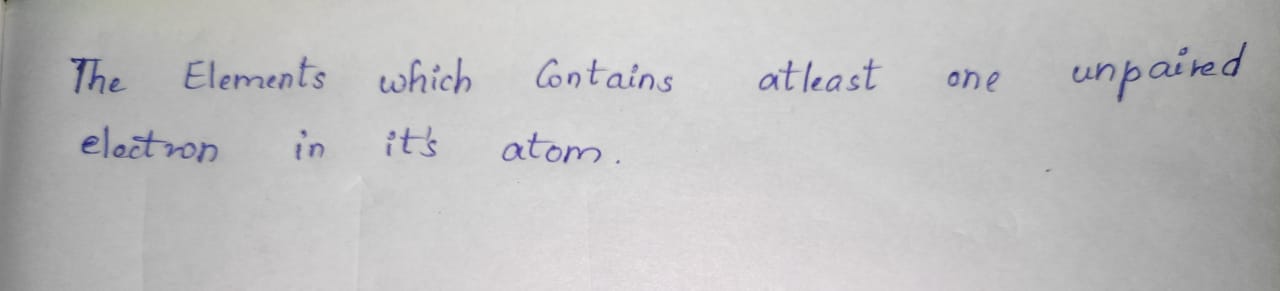 The Elements which Contains atleast one unpaired
electron in it's atom.